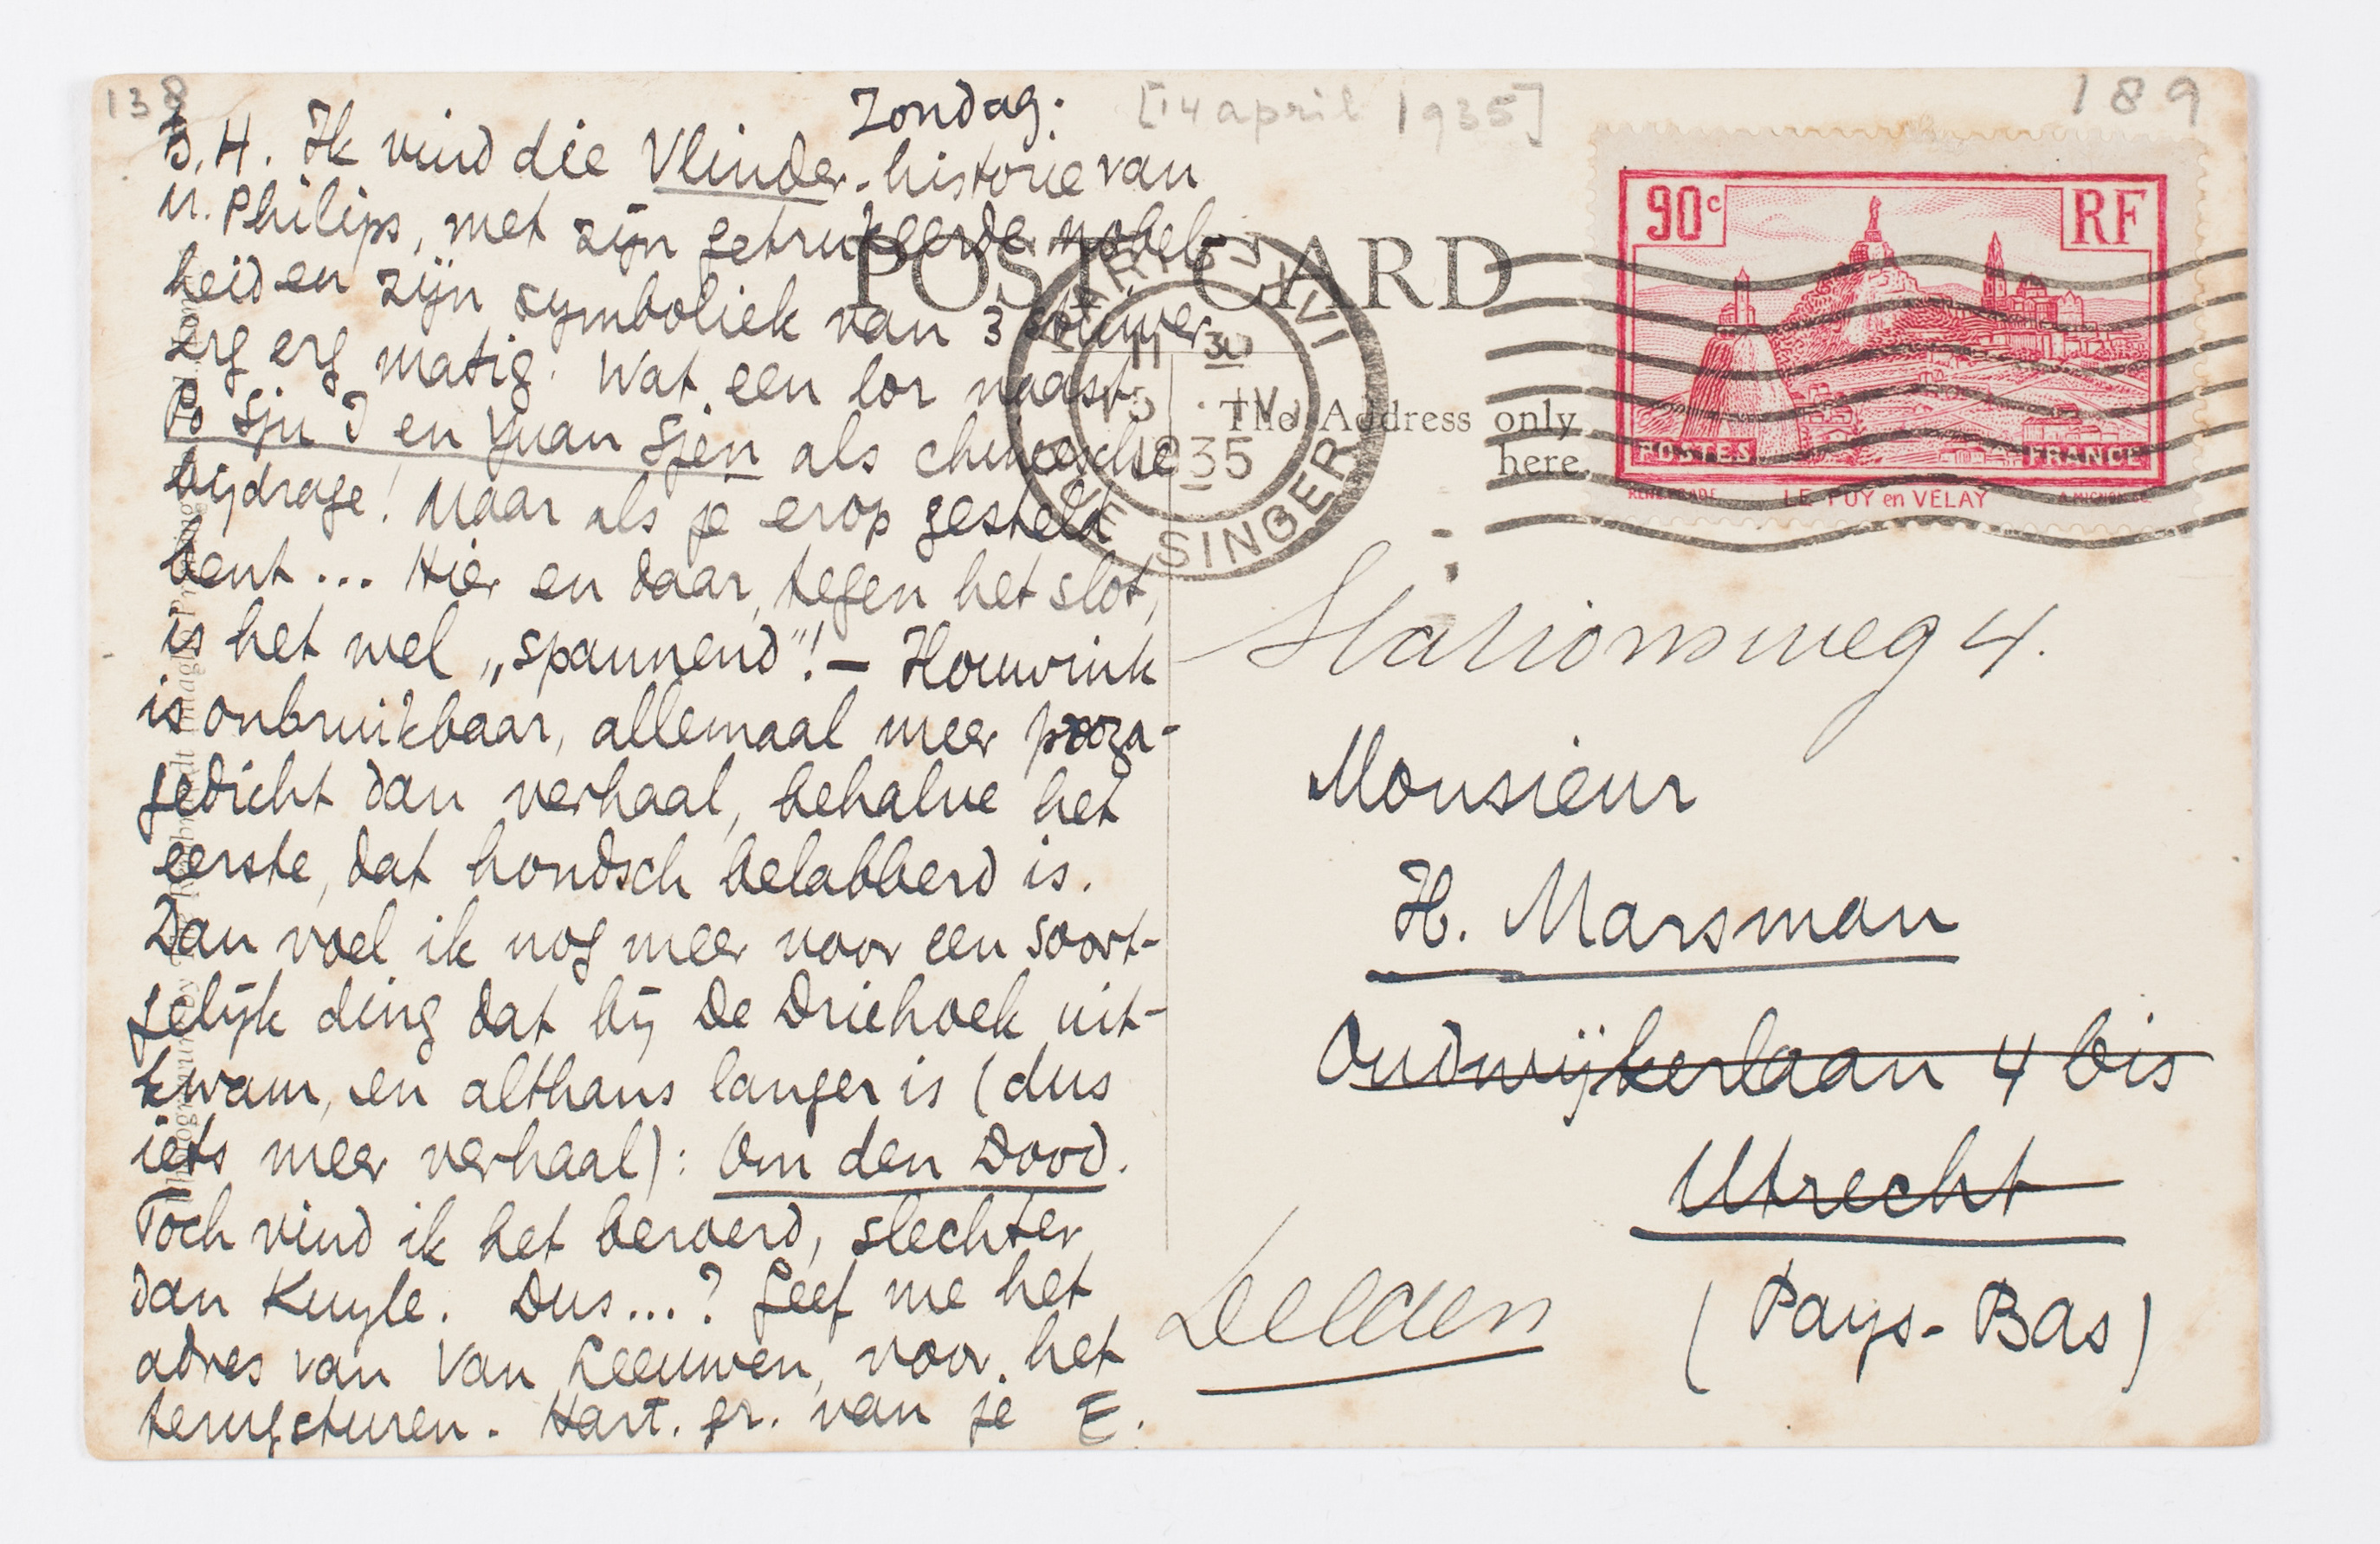 138
Zondag.
[14 april 1935]
189
B.H. Ik vind die Vlinder-historie van
M. Philips, met zijn getrukeerde nobel-
heid en zijn symboliek van 3 stuiver
erg erg matig. Wat een lor naast
Po Sju I en Yuan Sjen als chineesche
bijdrage! Maar als je erop gesteld
bent... Hier en daar, tegen het slot,
is het wel „spannend"! — Houwink
is onbruikbaar, allemaal meer proza-
gedicht dan verhaal, behalve het
eerste, dat hondsch belabberd is.
Dan voel ik nog meer voor een soort-
gelijk ding dat bij De Driehoek uit-
kwam, en althans langer is (dus
iets meer verhaal): Om den Dood.
Toch vind ik het beroerd, slechter
dan Kuyle. Dus...? Geef me het
adres van Van Leeuwen, voor het
terugsturen. Hart. gr. van je E.
POST CARD
The Address only
here
PARIS XVI
11 30
15 · IV
1935
SINGER
90c
RF
POSTES
FRANCE
LE PUY en VELAY
Stationsweg 4.
Monsieur
H. Marsman
Oudwijkerlaan 4 bis
Utrecht
(Pays-Bas)